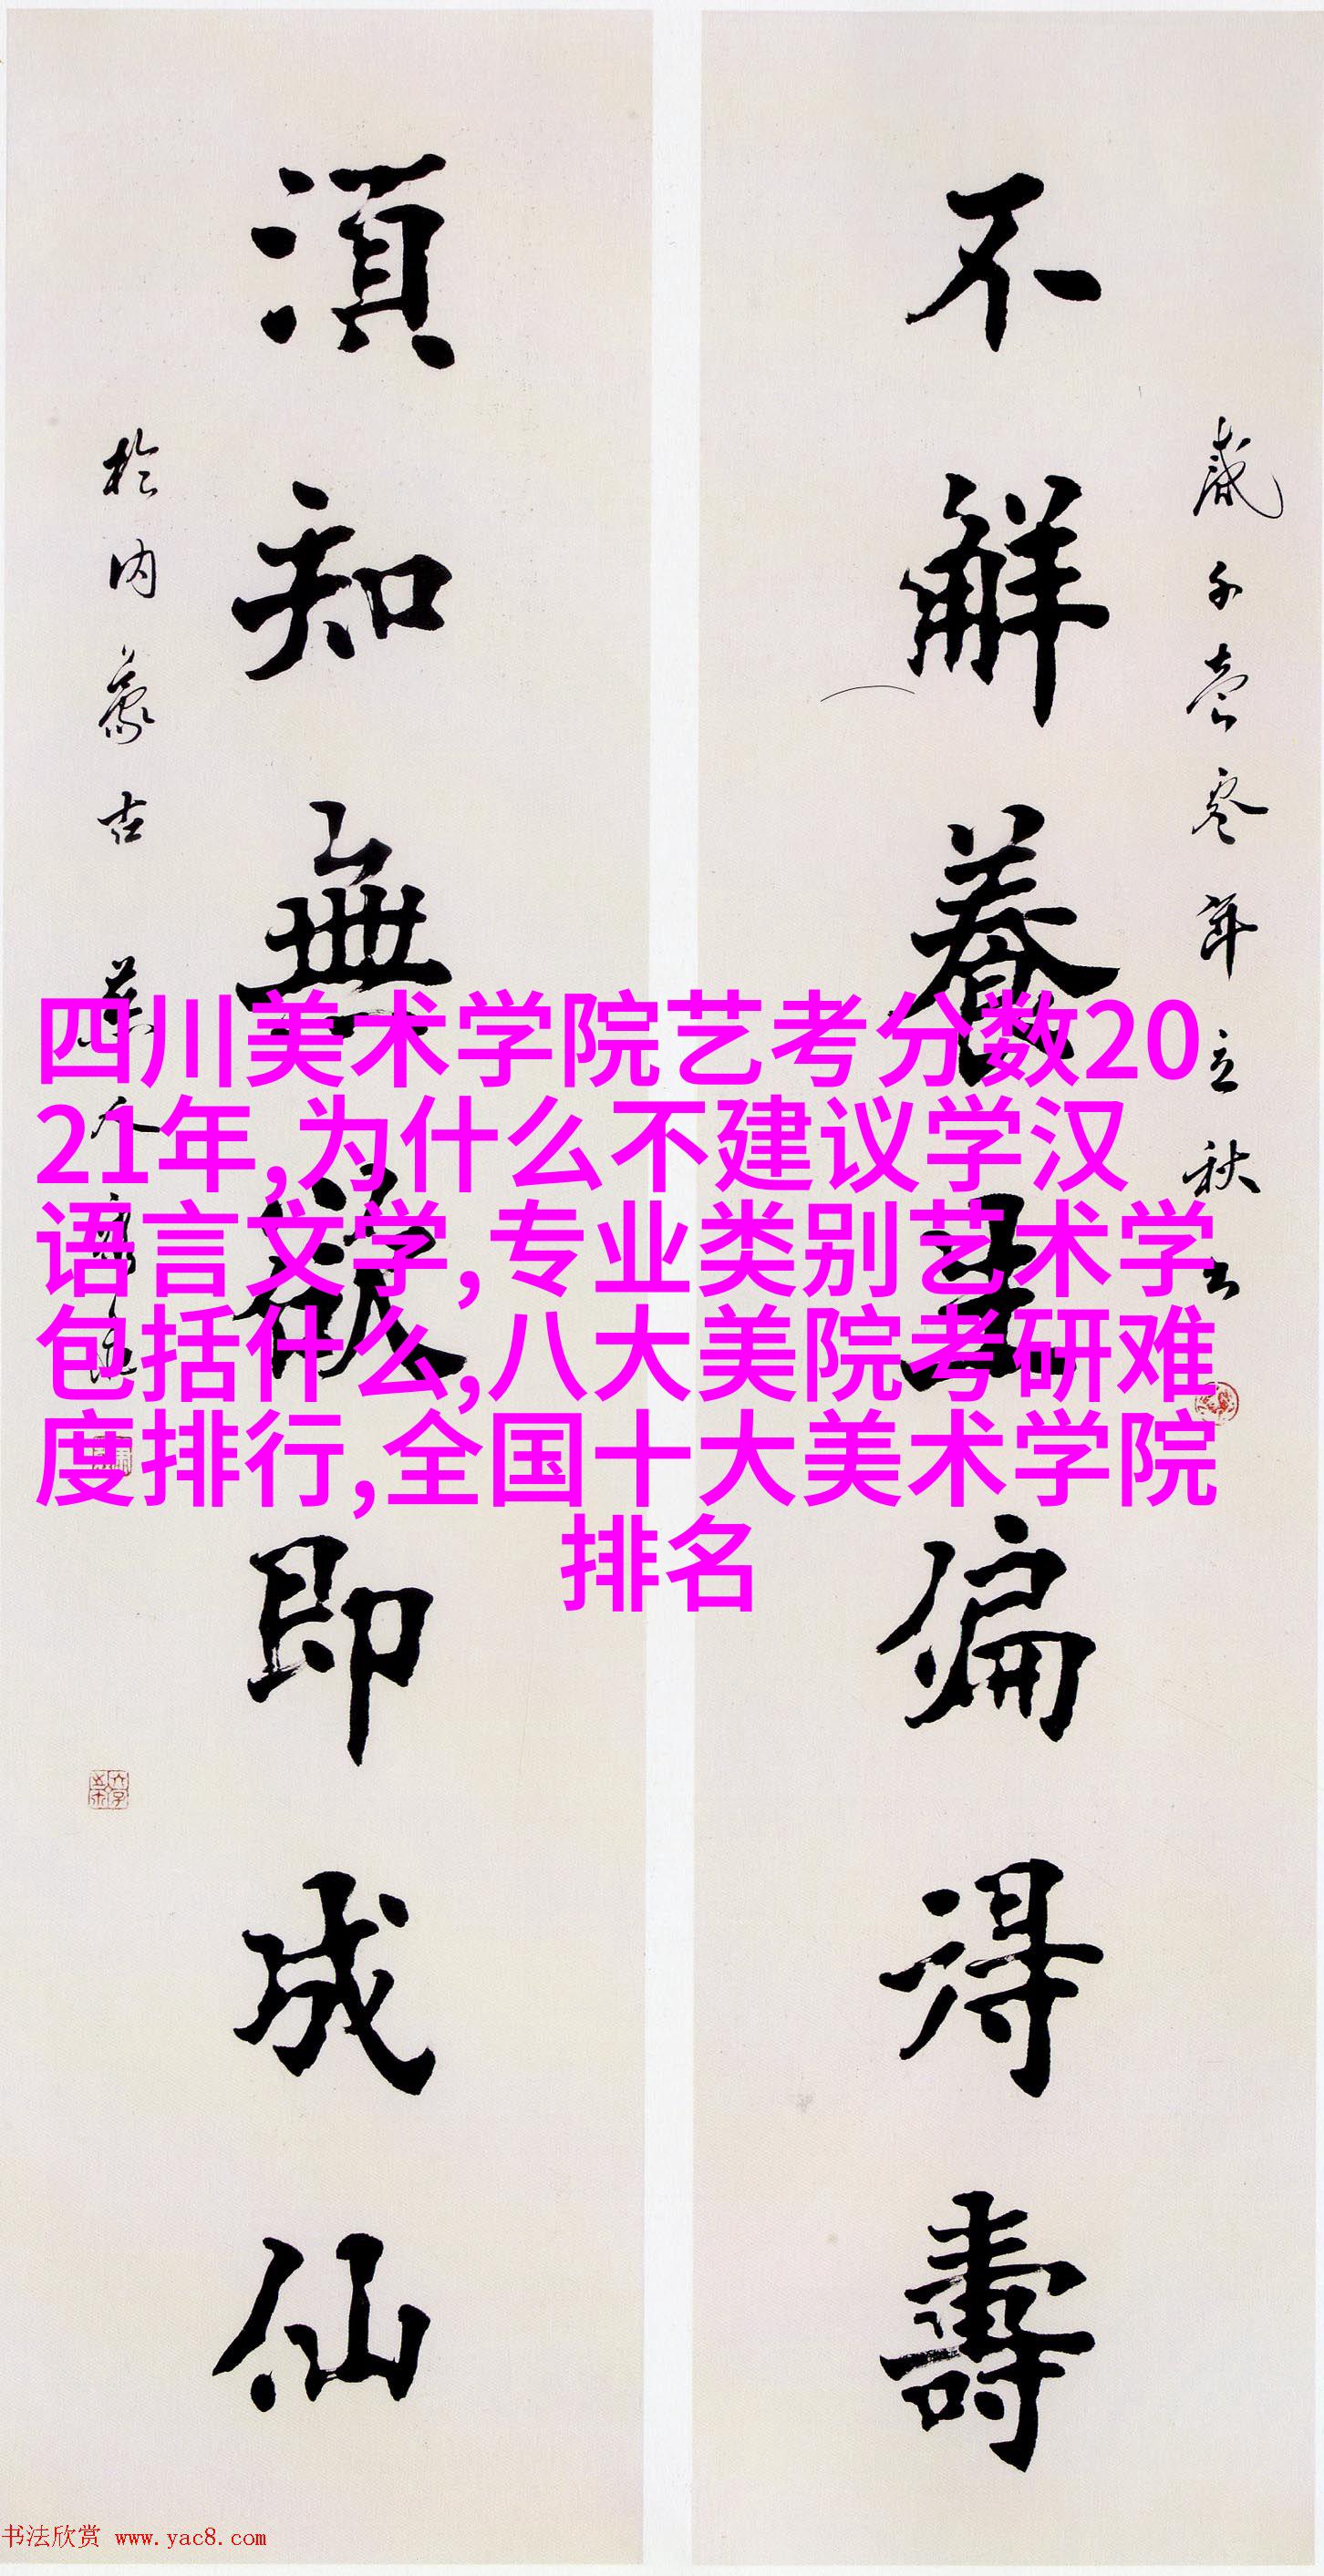 不解養生偏得壽
須知無欲即成仙
於内蒙古
四川美术学院艺考分数20
21年,为什么不建议学汉
语言文学,专业类别艺术学
包括什么,八大美院考研难
度排行,全国十大美术学院
排名
书法欣赏 www.yac8.com